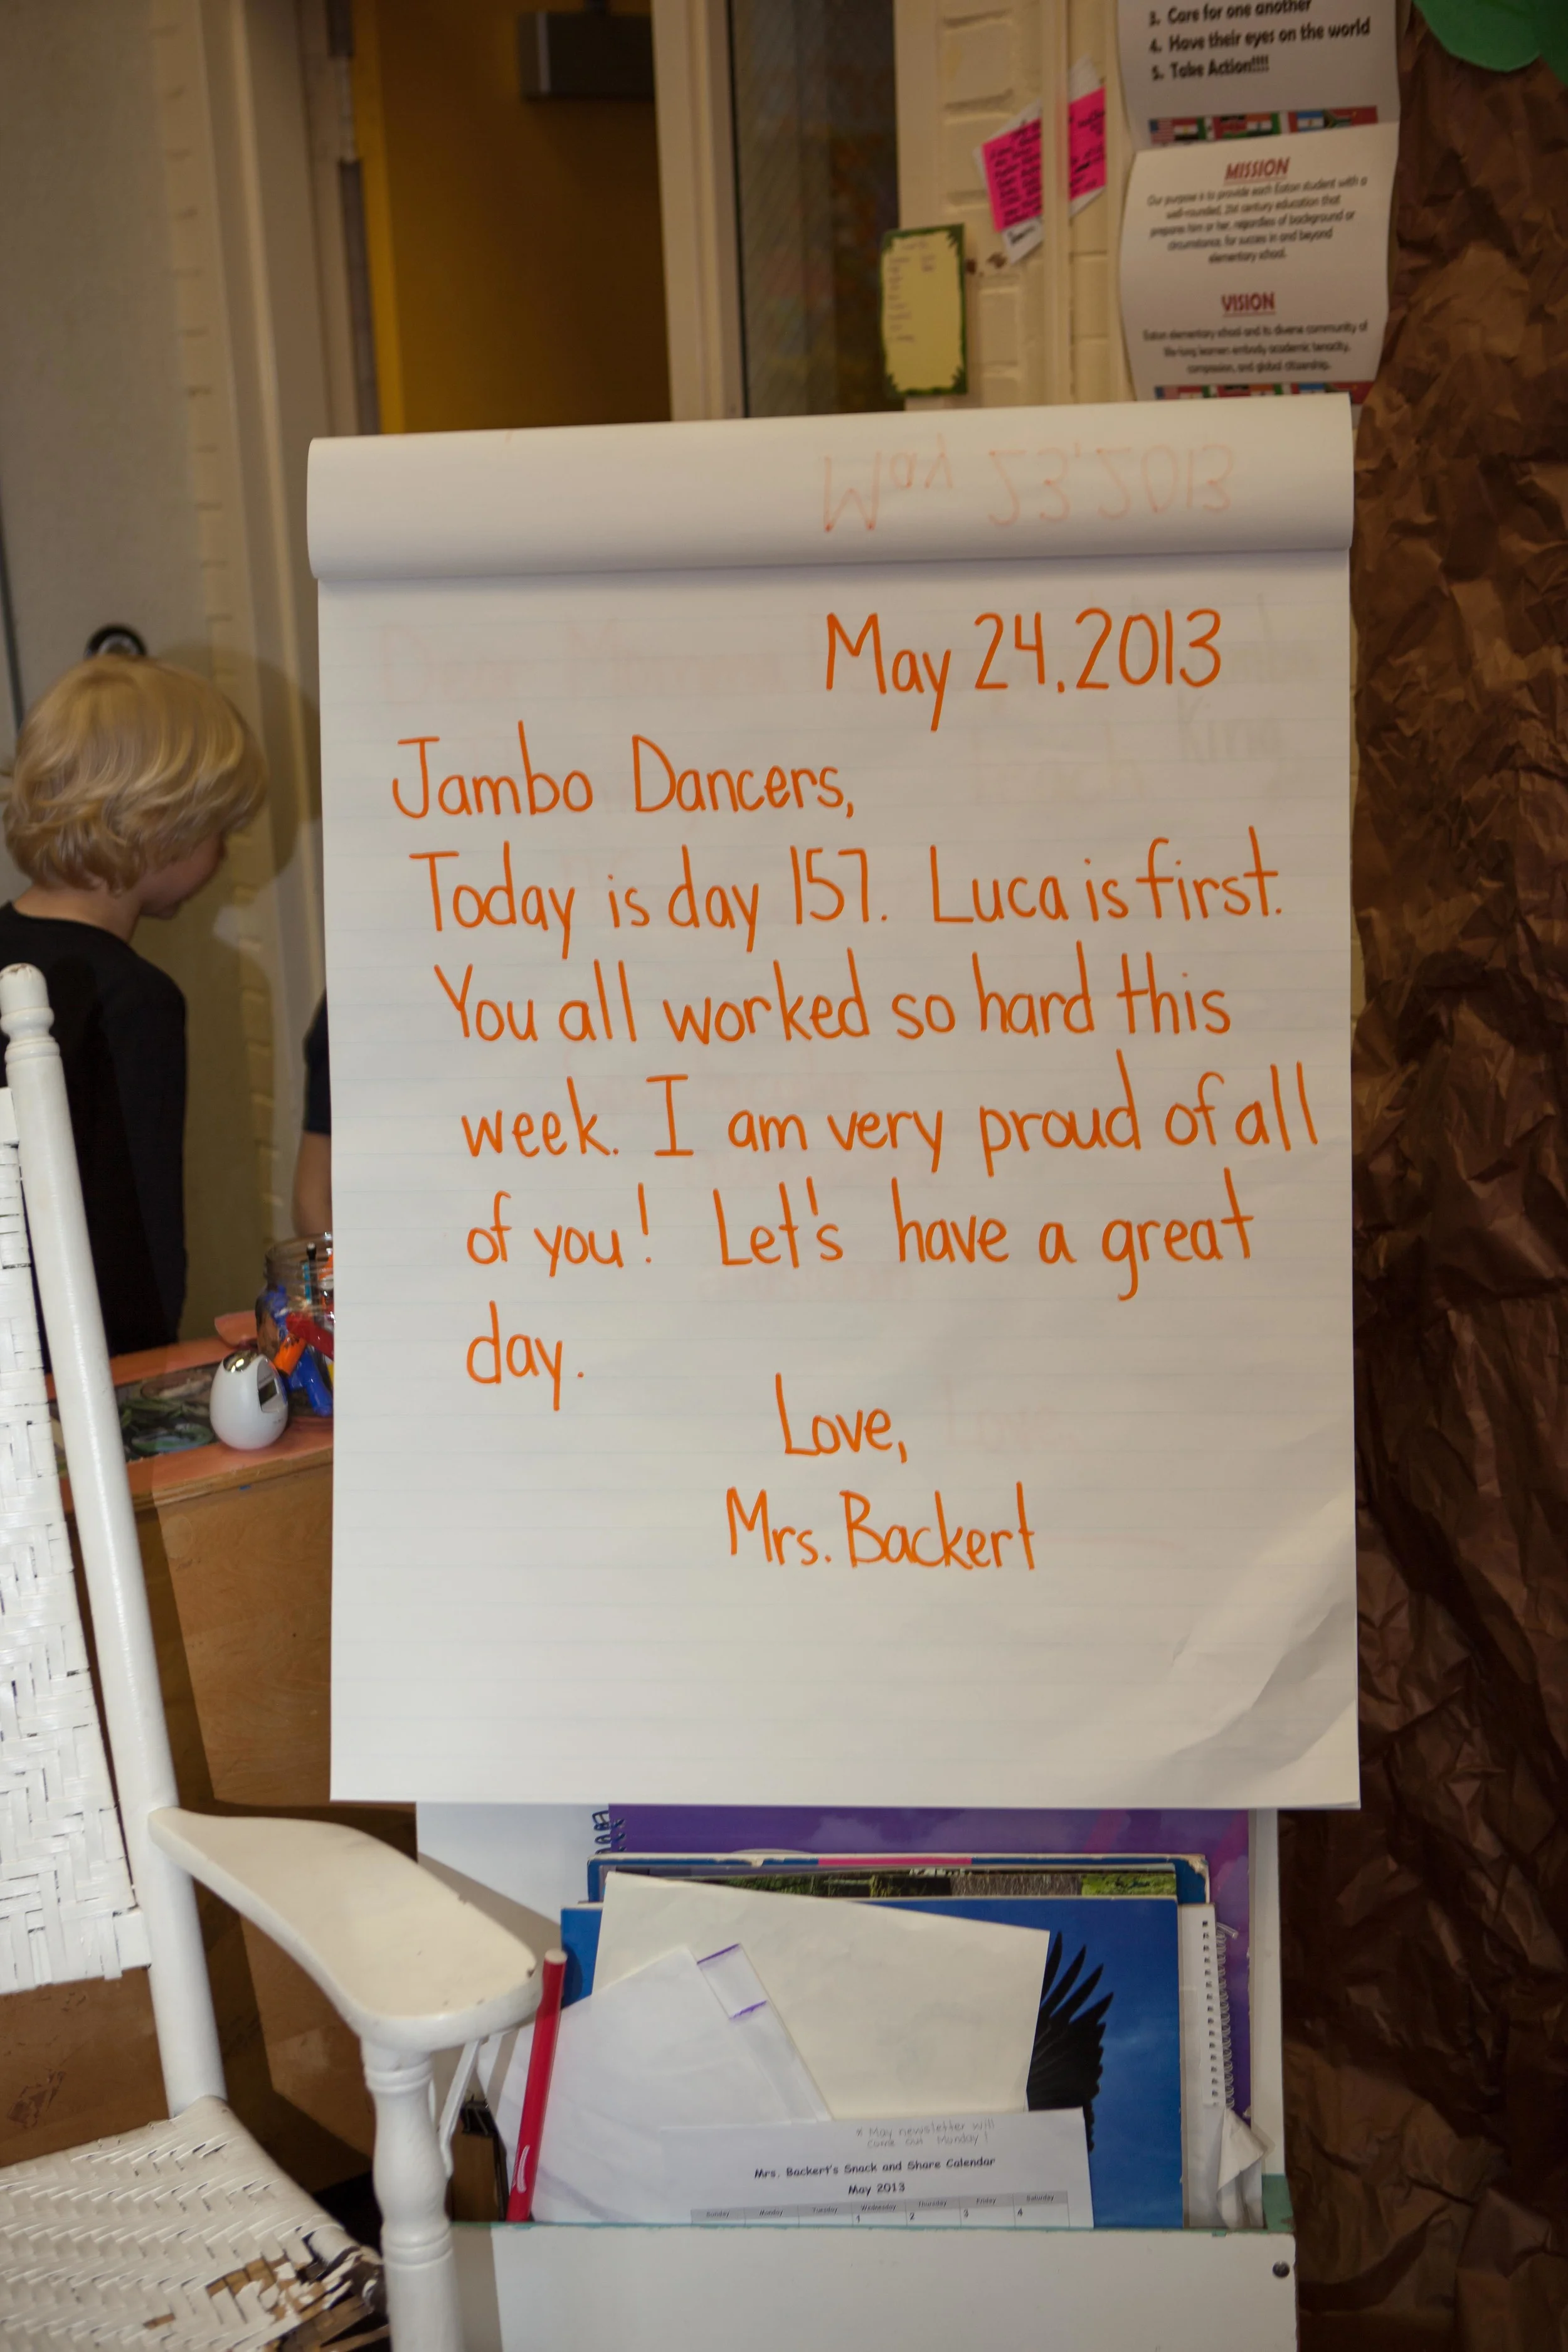 3. Care for one another
4. Have their eyes on the world
5. Take Action!!!!
MISSION
Our purpose is to provide each Eaton student with a
well-rounded, 21st century education that
prepares him or her, regardless of background or
circumstance, for success in and beyond
elementary school.
VISION
Eaton elementary school and its diverse community of
life-long learners embody academic tenacity,
compassion, and global citizenship.
May 23, 2013
May 24, 2013
Jambo Dancers,
Today is day 157. Luca is first.
You all worked so hard this
week. I am very proud of all
of you! Let's have a great
day.
Love,
Mrs. Backert
* May newsletter will
come out Monday!
Mrs. Backert's Snack and Share Calendar
May 2013
Sunday Monday Tuesday Wednesday Thursday Friday Saturday
1 2 3 4